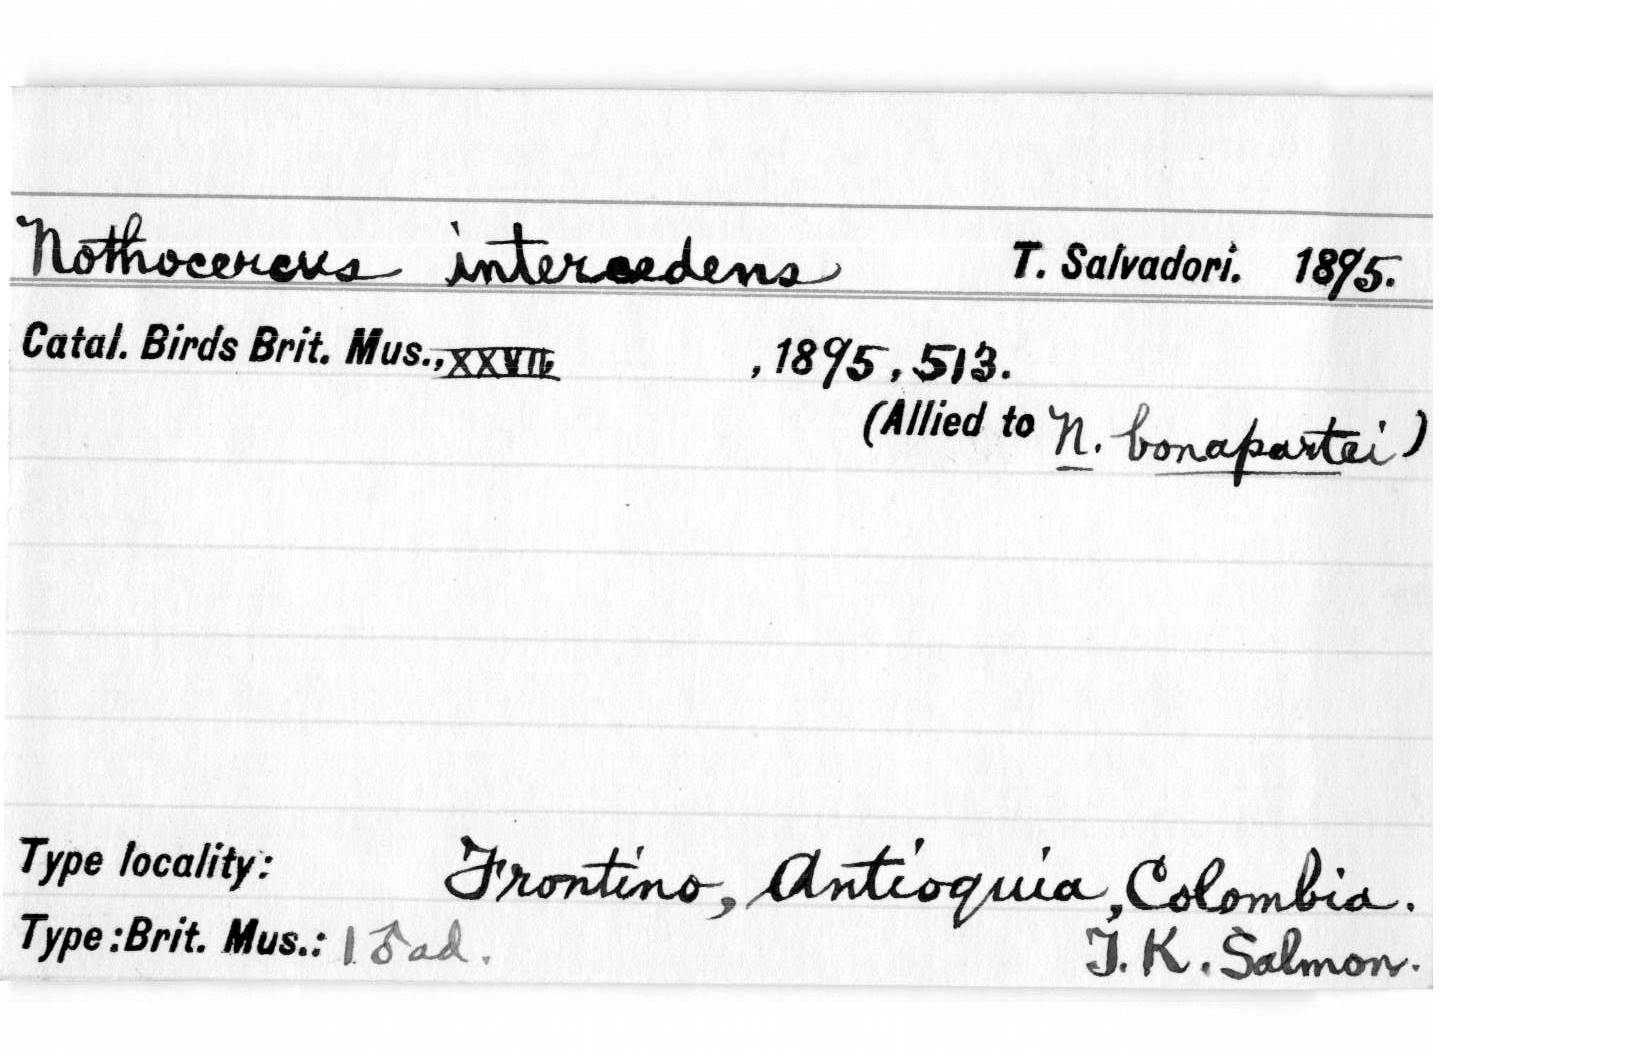 Nothocercus intercedens T. Salvadori. 1895.
Catal. Birds Brit. Mus., XXVII, , 1895, 513.
(Allied to N. bonapartei)
Type locality: Frontino, Antioquia, Colombia.
Type: Brit. Mus.: 1 ♂ ad. T. K. Salmon.